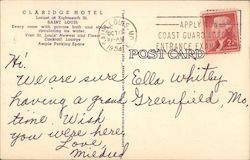 CLARIDGE HOTEL
Locust at Eighteenth St.
SAINT LOUIS
Every room with private bath and
circulating ice water.
Cocktail Lounge
Ample Parking Space
ST. LOUIS, MO.
OCT
1954
APPLY
COAST GUARD
ENTRANCE EXAM
POST CARD
Hi!
We are sure
having a grand
time. Wish
you were here,
Love,
Mildred
Ella Whitley
Greenfield, Mo.